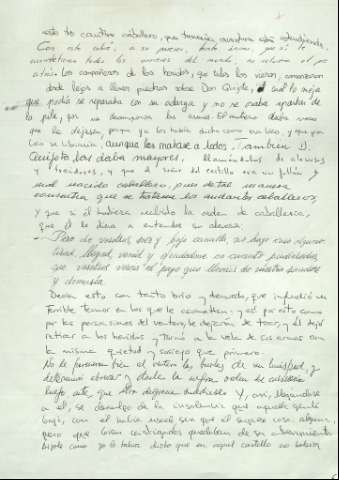 este tu cautivo caballero, que tamaña aventura está atendiendo.
Con esto cobró, a su parecer, tanto ánimo, que si le
acometieran todos los arrieros del mundo, no volviera el pie
atrás. Los compañeros de los heridos, que tales los vieron, comenzaron
desde lejos a llover piedras sobre Don Quijote, el cual lo mejor
que podía se reparaba con su adarga y no se osaba apartar de
la pila, por no desamparar las armas. El ventero daba voces
que le dejasen, porque ya les había dicho como era loco, y que por
loco se libraría, aunque los matase a todos. También D.
Quijote las daba mayores, llamándolos de alevosos
y traidores, y que el señor del castillo era un follón y
mal nacido caballero, pues de tal manera
consentía que se tratasen los andantes caballeros,
y que si él hubiera recibido la orden de caballería,
que él le diera a entender su alevosía:
- Pero de vosotros, soez y baja canalla, no hago caso alguno:
tirad, llegad, venid y ofendedme en cuanto pudiéredes,
que vosotros veréis el pago que lleváis de vuestra sandez
y demasía.
Decía esto con tanto brío y denuedo, que infundió un
terrible temor en los que le acometían. y así por esto como
por las persuasiones del ventero, le dejaron de tirar, y él dejó
retirar a los heridos y tornó a la vela de sus armas con
la misma quietud y sosiego que primero.
No le parecieron bien al ventero las burlas de su huésped, y
determinó abreviar y darle la negra orden de caballería
luego, antes que otra desgracia sucediese. Y, así, llegándose
a él, se disculpó de la insolencia que aquella gente
baja con él había usado, sin que él supiese cosa alguna,
pero que bien castigados quedaban de su atrevimiento.
Díjole como ya le había dicho que en aquel castillo no había